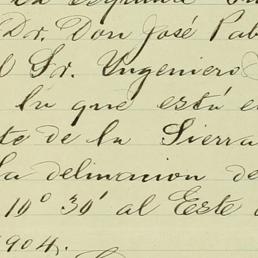 la segunda
Dr. Don José Pab
l Sr. Ingeniero
la que está e
te de la Sierra
la delineacion de
10° 30' al Este
1904.